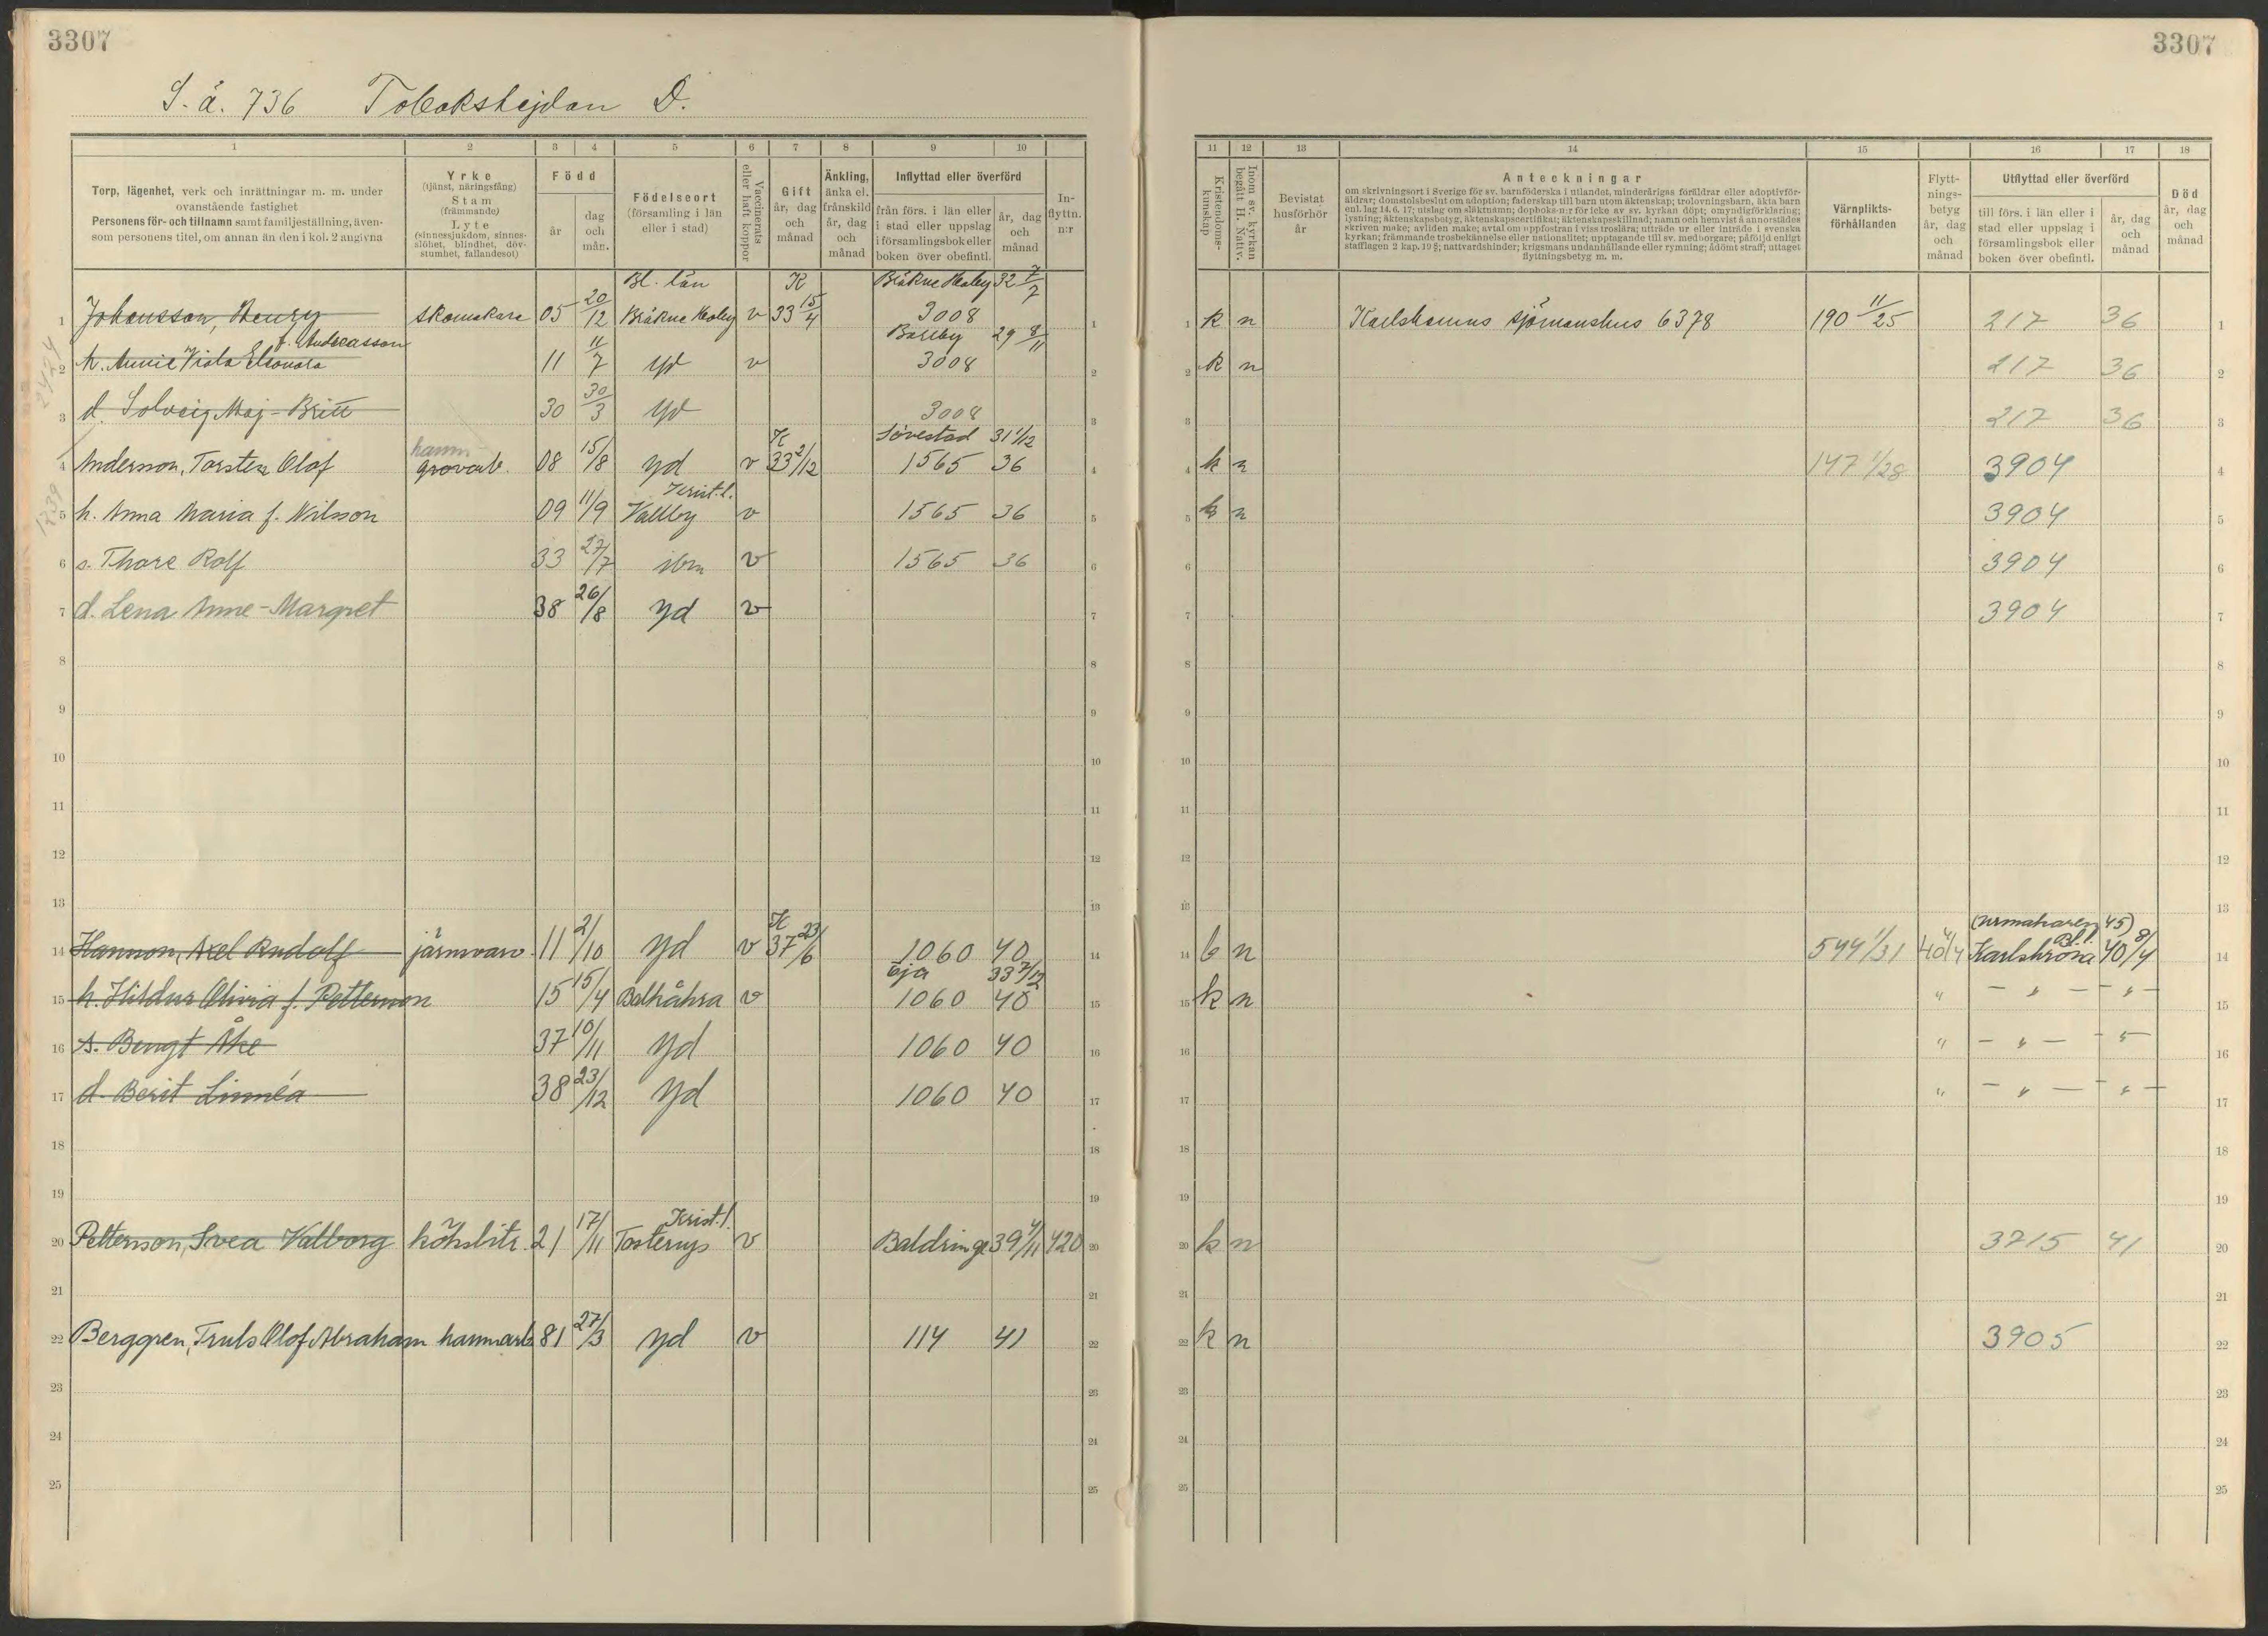 3307
3307
S. å. 736 Tobakshejdan D.
1 2 3 4 5 6 7 8 9 10
Torp, lägenhet, verk och inrättningar m. m. under ovanstående fastighet
Personens för- och tillnamn samt familjeställning, även-
som personens titel, om annan än den i kol. 2 angivna
Yrke
(tjänst, näringsfång)
Stam
(främmande)
Lyte
(sinnessjukdom, sinnes-
slöhet, blindhet, döv-
stumhet, fallandesot)
Född
år
dag och mån.
Födelseort
(församling i län
eller i stad)
Vaccinerats
eller haft koppor
Gift
år, dag
och
månad
Änkling,
änka el.
frånskild
år, dag
och
månad
Inflyttad eller överförd
från förs. i län eller
i stad eller uppslag
i församlingsbok eller
boken över obefintl.
år, dag
och
månad
In-
flyttn.
n:r
11 12 13 14 15 16 17 18
Kristendoms-
kunskap
Inom sv. kyrkan
begått H. Nattv.
Bevistat
husförhör
år
Anteckningar
om skrivningsort i Sverige för sv. barnföderska i utlandet, minderårigas föräldrar eller adoptivför-
äldrar; domstolsbeslut om adoption; faderskap till barn utom äktenskap; trolovningsbarn, äkta barn
enl. lag 14. 6. 17; utslag om släktnamn; dopboks-n:r för icke av sv. kyrkan döpt; omyndigförklaring;
lysning; äktenskapsbetyg, äktenskapscertifikat; äktenskapsskillnad; namn och hemvist å annorstädes
skriven make; avliden make; avtal om uppfostran i viss troslära; utträde ur eller inträde i svenska
kyrkan; främmande trosbekännelse eller nationalitet; upptagande till sv. medborgare; påföljd enligt
strafflagen 2 kap. 19 §; nattvardshinder; krigsmans undanhållande eller rymning; ådömt straff; uttaget
flyttningsbetyg m. m.
Värnplikts-
förhållanden
Flytt-
nings-
betyg
år, dag
och
månad
Utflyttad eller överförd
till förs. i län eller i
stad eller uppslag i
församlingsbok eller
boken över obefintl.
år, dag
och
månad
Död
år, dag
och
månad
Bl. län K Bräkne Hoby 32 7/7
1 Johansson, Henry skomakare 05 20/12 Bräkne Hoby v 33 15/4 3008 1
1 k n Karlshamns sjömanshus 6378 190 11/25 217 36 1
f. Andreasson 29 8/11
2 h. Annie Viola Eleonora 11 11/7 yd v 3008 2
2 k n 217 36 2
3 d. Solveig Maj-Britt 30 30/3 yd 3008 3
3 217 36 3
hamn K Sövestad 31 1/12
4 Andersson, Torsten Olof grovarb. 08 15/8 yd v 33 2/12 1565 36 4
4 k n 147 1/28 3904 4
Krist. l.
5 h. Anna Maria f. Nilsson 09 11/9 Vallby v 1565 36 5
5 k n 3904 5
6 s. Thore Rolf 33 27/7 ibm v 1565 36 6
6 3904 6
7 d. Lena Anne-Margret 38 26/8 yd v 7
7 3904 7
8 8 8 8
9 9 9 9
10 10 10 10
11 11 11 11
12 12 12 12
13 13 13 13
K (urmakaren 45)
14 Hansson, Axel Rudolf järnvarv 11 2/10 yd v 37 23/6 1060 40 14
14 k n 544 1/31 40 4/4 Karlskrona Bl. l. 40 8/4 14
Öja 33 7/12
15 h. Hildur Olivia f. Pettersson 15 15/4 Balkåkra v 1060 40 15
15 k n " — " — — " — 15
16 s. Bengt Åke 37 10/11 yd 1060 40 16
16 " — " — — " — 16
17 d. Berit Linnéa 38 23/12 yd 1060 40 17
17 " — " — — " — 17
18 18 18 18
19 19 19 19
Krist. l.
20 Pettersson, Svea Valborg köksbitr. 21 17/11 Tosterup v Baldringe 39 4/11 420 20
20 k n 3715 41 20
21 21 21 21
22 Berggren, Truls Olof Abraham hamnarb. 81 27/3 yd v 114 41 22
22 k n 3905 22
23 23 23 23
24 24 24 24
25 25 25 25